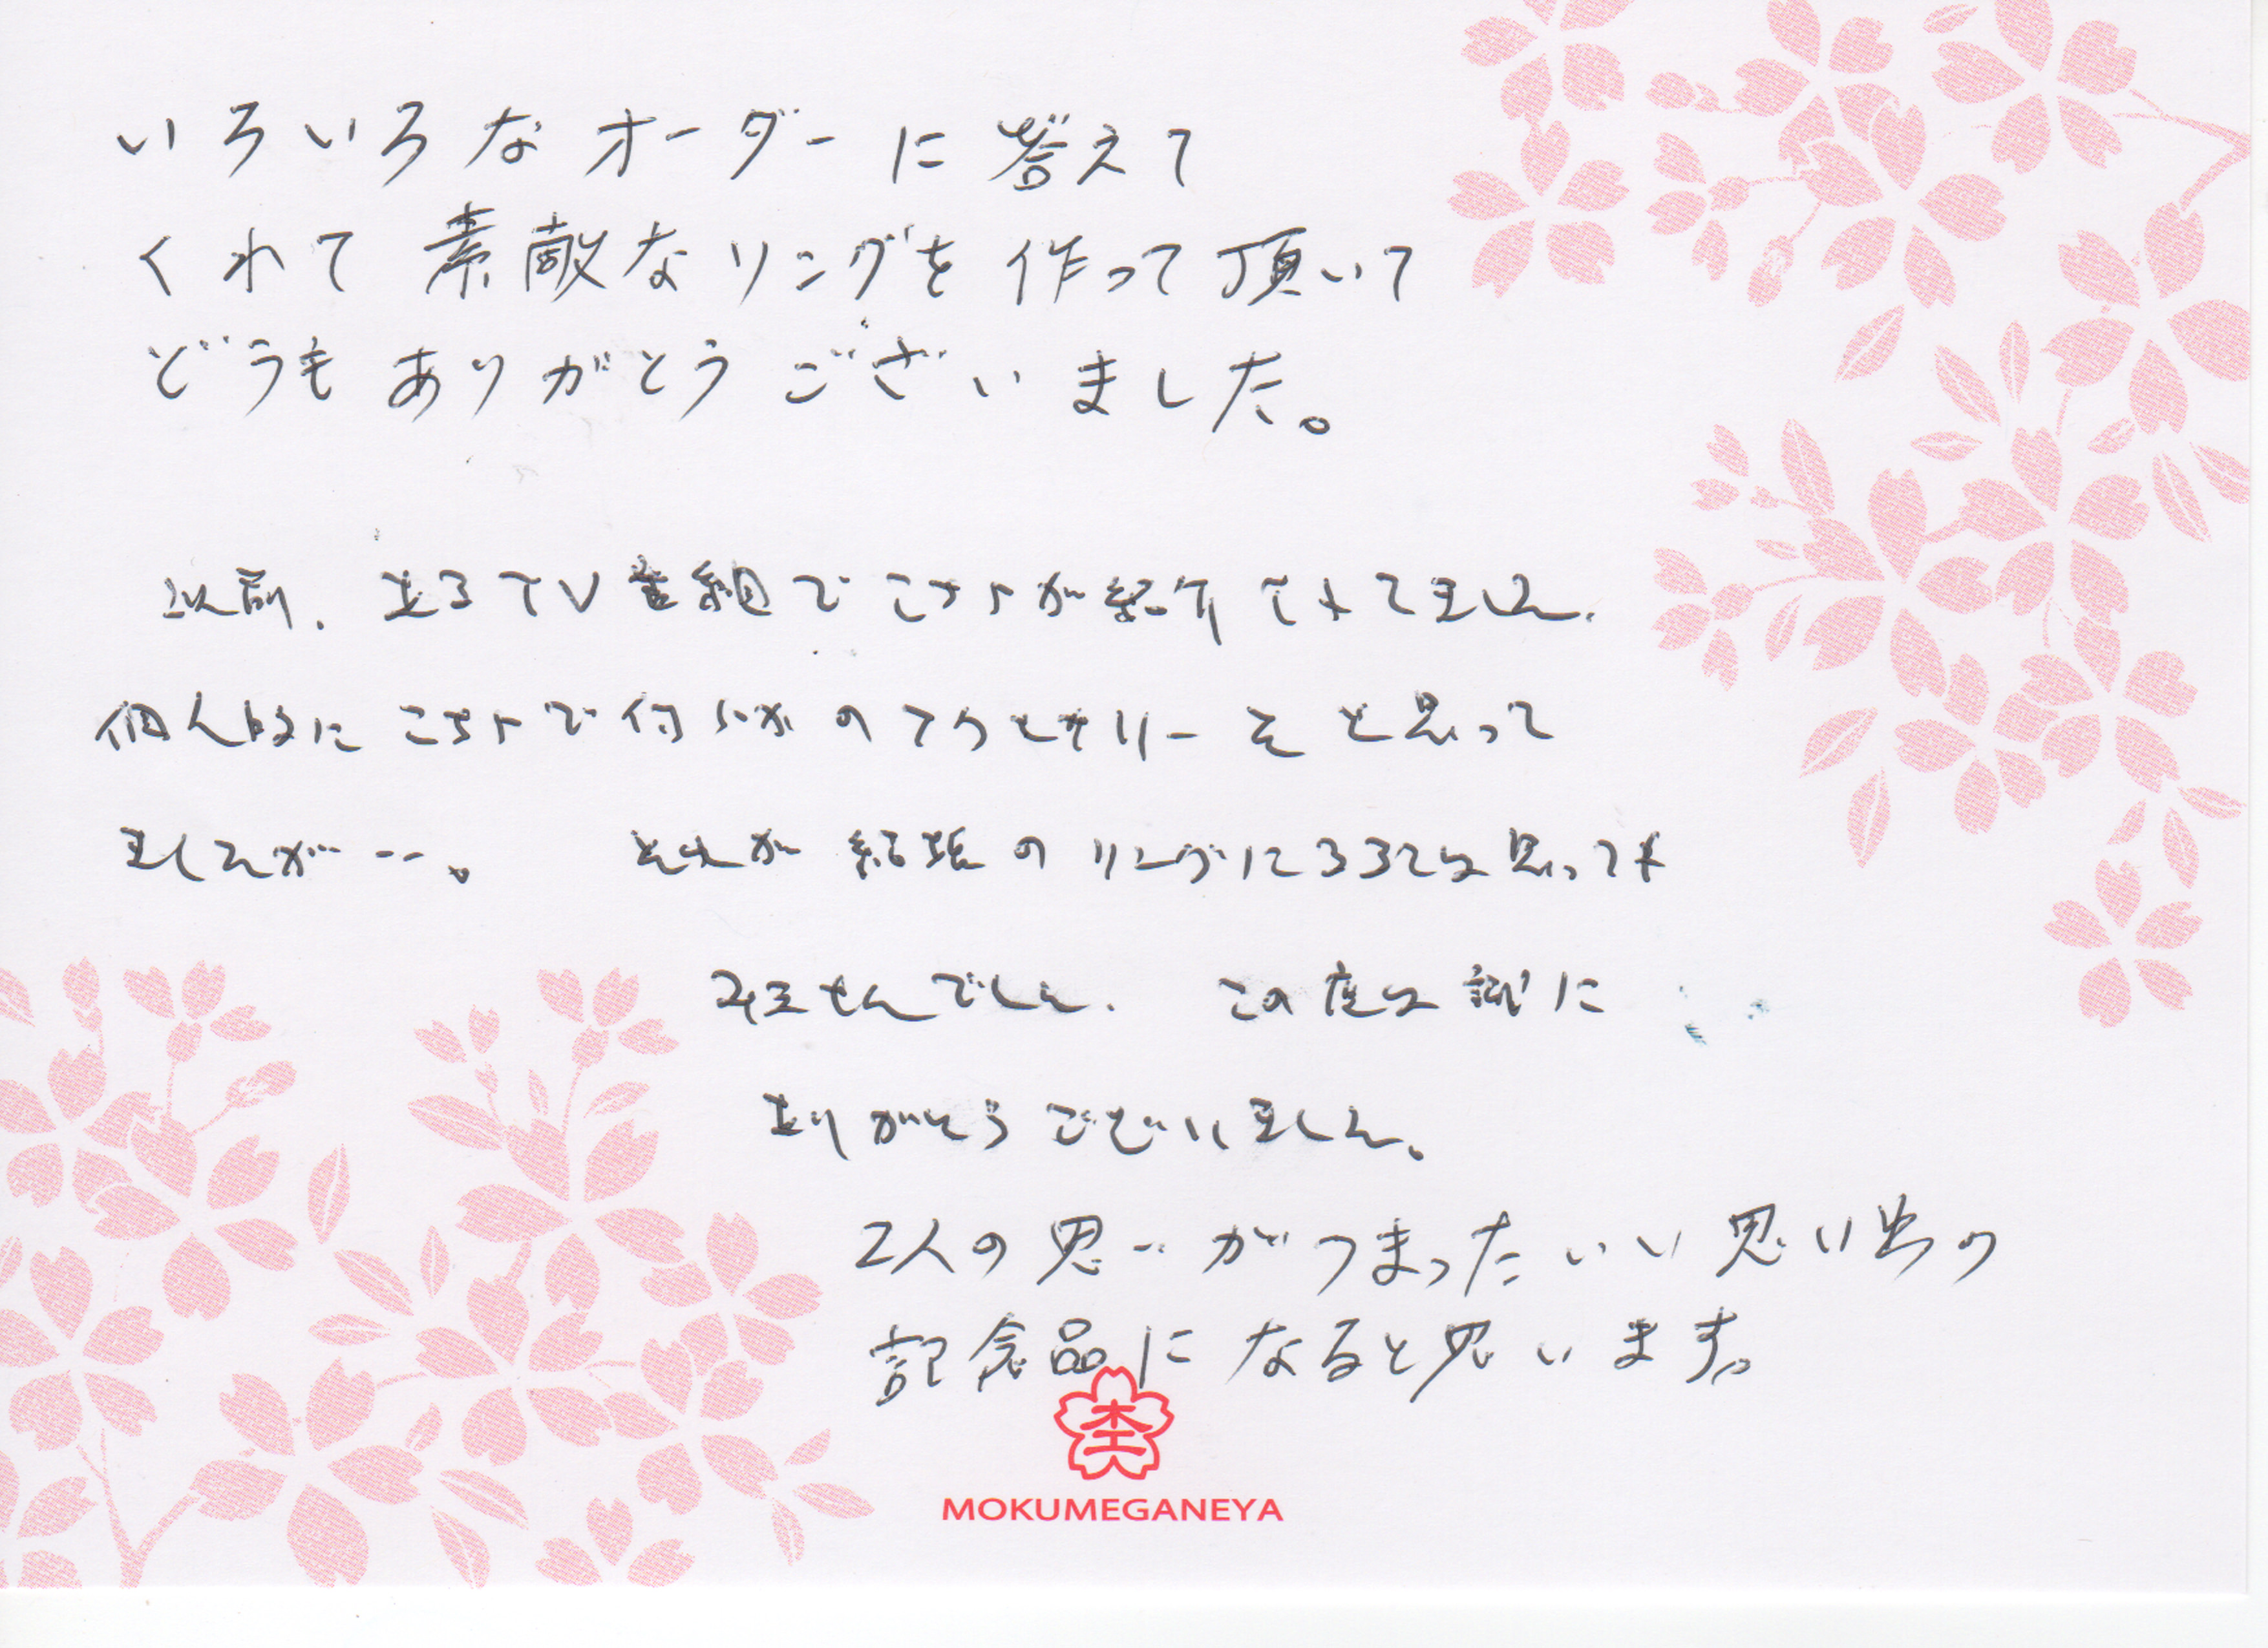 いろいろなオーダーに答えて
くれて素敵なリングを作って頂いて
どうもありがとうございました。
以前、あるTV番組でこちらが紹介されてました。
個人的にこちらで何らかのアクセサリーをと思って
ましたが…。 それが結婚のリングになるとは思っても
みませんでした。 この度は誠に
ありがとうございました。
2人の思いがつまったいい思い出の
記念品になると思います。
杢
MOKUMEGANEYA